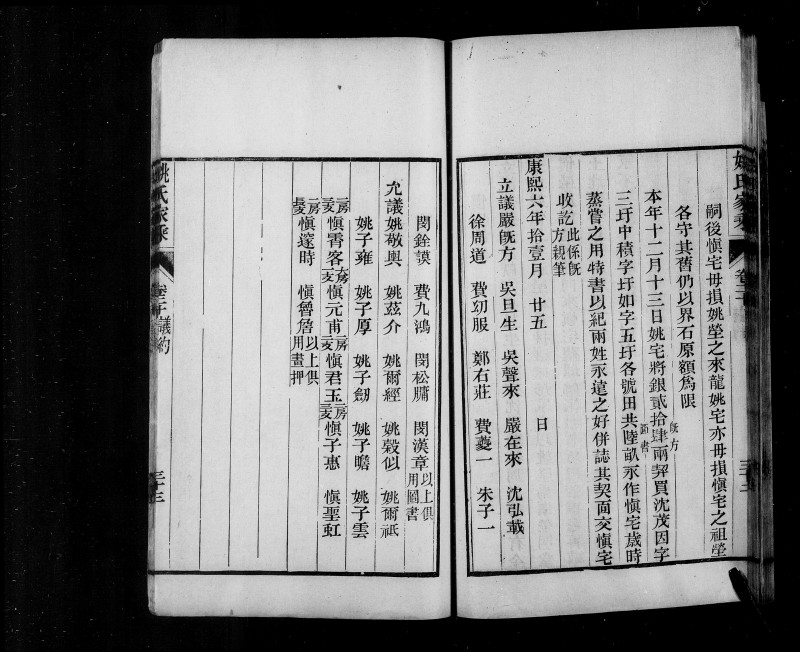 姚氏家乘
嗣後愼宅毋損姚塋之來龍姚宅亦毋損愼宅之祖塋
各守其舊仍以界石原額爲限
旣方
節書
本年十二月十三日姚宅將銀貳拾肆兩契買沈茂因字
三圩中積字圩如字五圩各號田共陸畝永作愼宅歲時
蒸嘗之用特書以紀兩姓永遠之好併誌其契面交愼宅
收訖此係旣方親筆
康熙六年拾壹月 廿五 日
立議嚴旣方 吳旦生 吳聲來 嚴在來 沈弘載
徐周道 費㓜服 鄭右莊 費菱一 朱子一
閔銓謨 費九鴻 閔松牖 閔漢章以上俱用圖書
允議姚敬輿 姚玆介 姚爾經 姚穀似 姚爾祗
姚子雍 姚子厚 姚子劒 姚子瞻 姚子雲
二房三支愼霄客六房三支愼元甫二房三支愼君玉二房三支愼子惠 愼聖虹
二房長支愼邃時 愼魯詹以上俱用畫押
姚氏家乘 卷二十議約 三十三